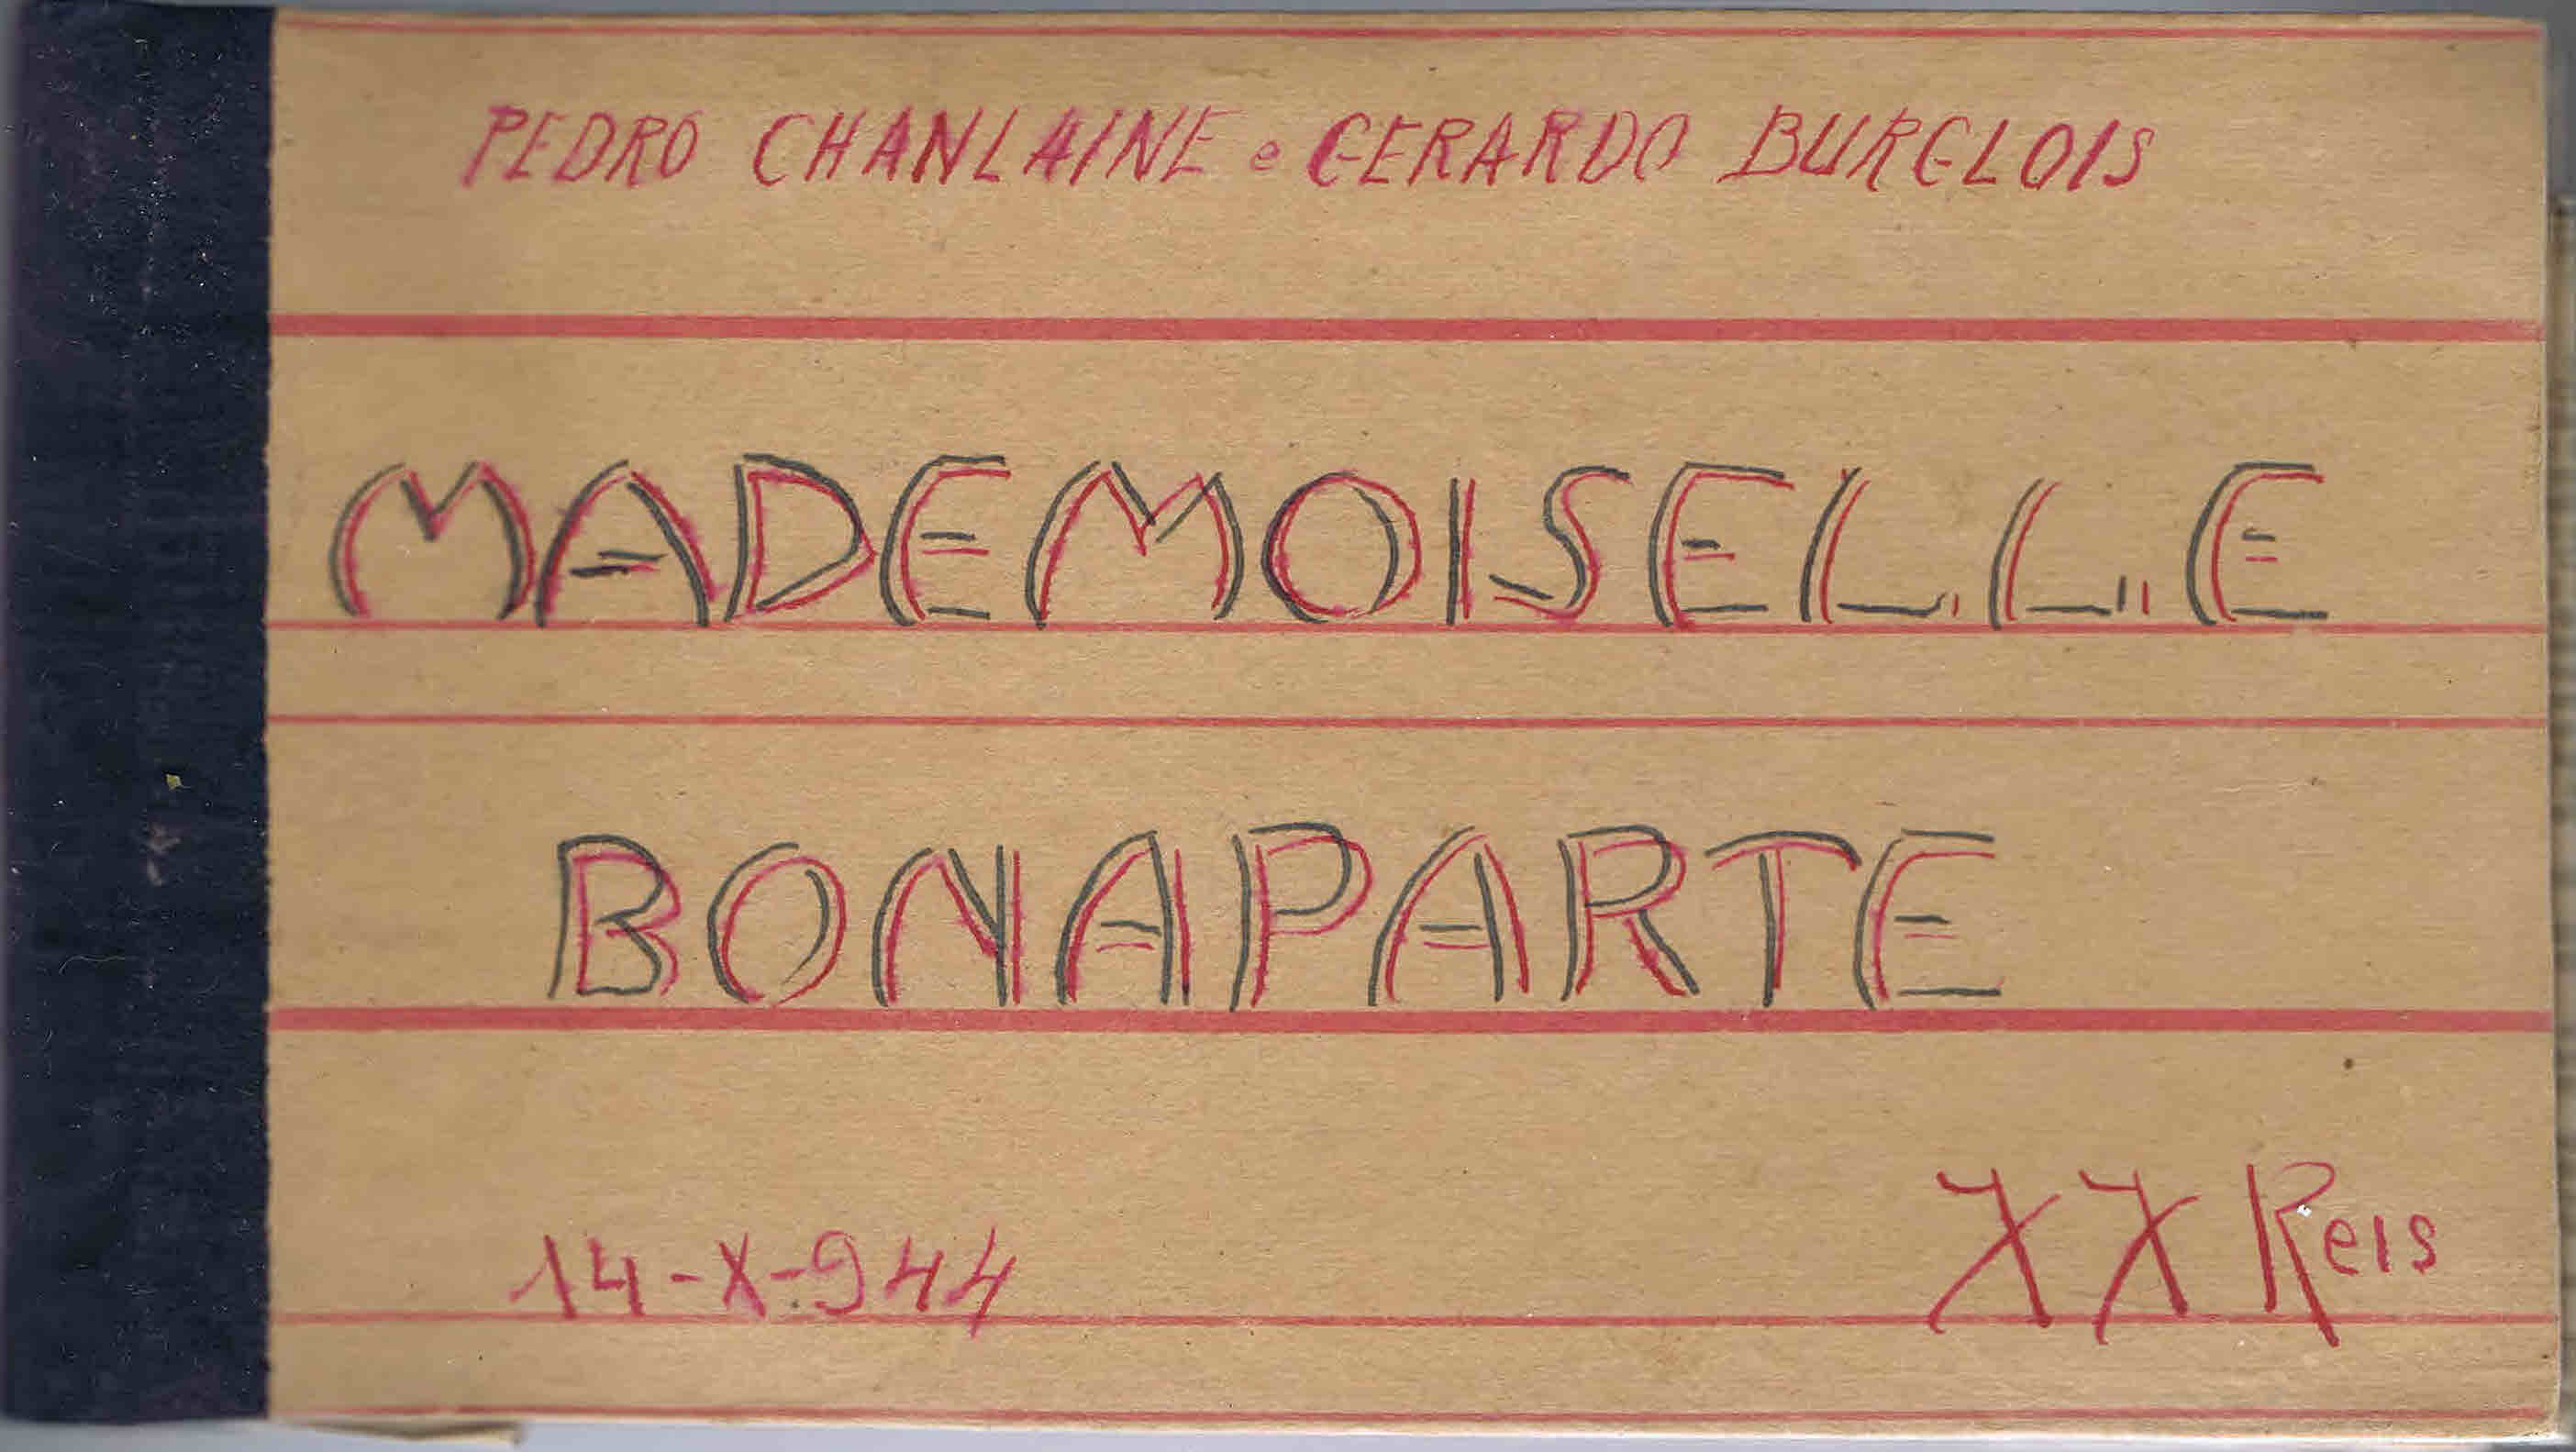 PEDRO CHANLAINE e GERARDO BURGLOIS
MADEMOISELLE
BONAPARTE
14-X-944
XX Reis